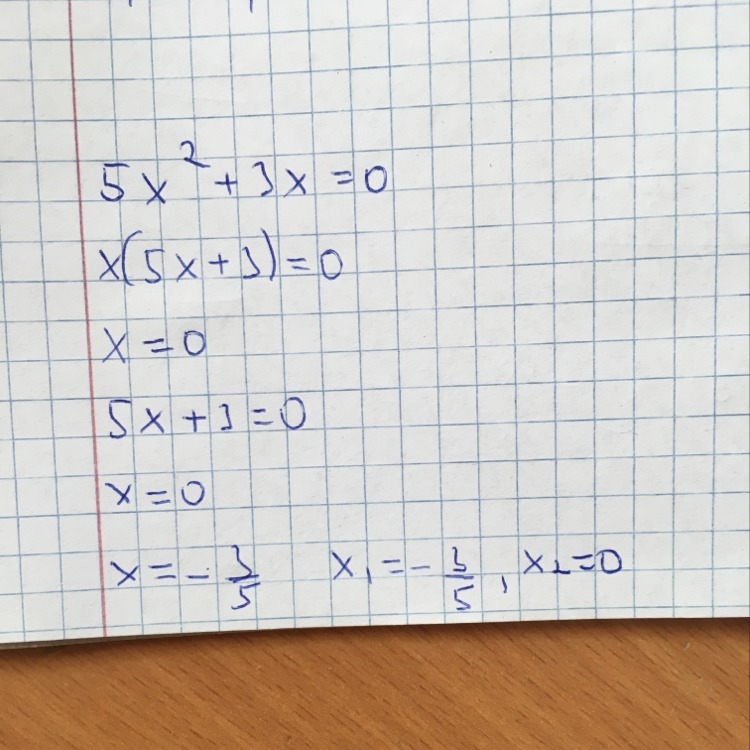 5x² + 3x = 0
x(5x + 3) = 0
x = 0
5x + 3 = 0
x = 0
x = - 3/5 x₁ = - 3/5, x₂ = 0